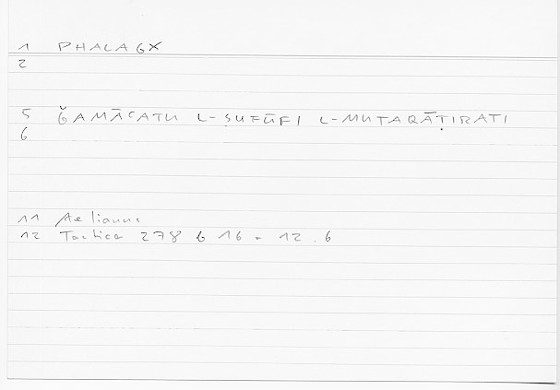 1 PHALAGX
2
5 ǦAMĀCATU L-ṢUFŪFI L-MUTAQĀṬIRATI
6
11 Aelianus
12 Tactica 278 b 16 = 12.6